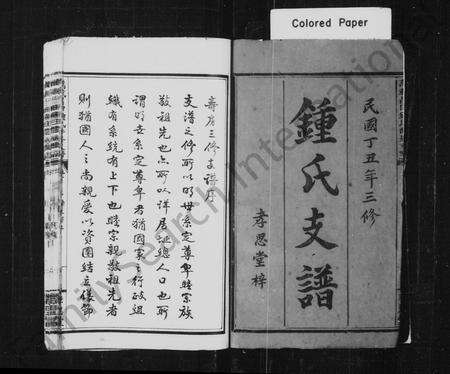 Colored Paper
民國丁丑年三修
鍾氏支譜
孝思堂梓
壽房三修支譜序
支譜之修所以明世系定尊卑睦宗族
敬祖先也亦所以詳居址總人口也所
謂明世系定尊卑者猶國家之行政組
織有系統有上下也睦宗親敬祖先者
則猶國人之尚親愛以資團結立儀節
FamilySearch International